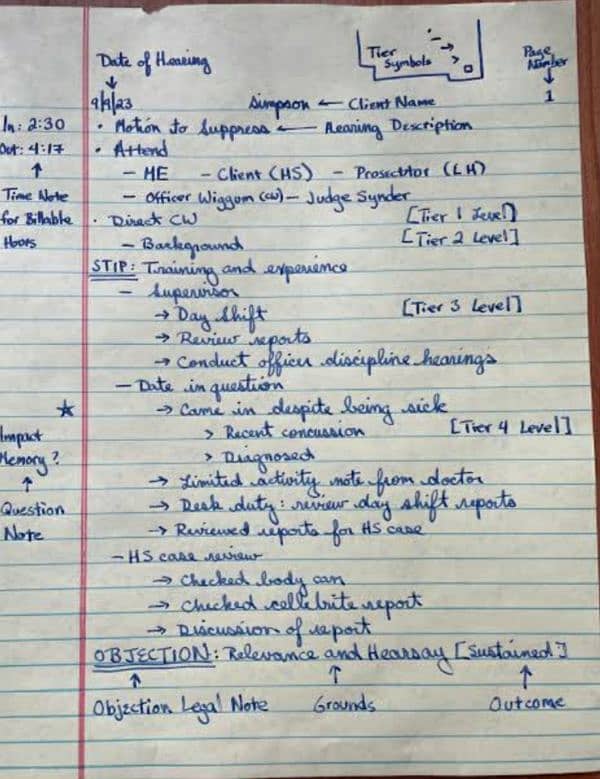 Date of Hearing
Tier
Symbols
Page
Number
9/9/23
Simpson ← Client Name
1
In: 2:30
• Motion to Suppress ← Hearing Description
Out: 4:17
• Attend
- ME - Client (HS) - Prosecutor (LH)
Time Note
- Officer Wiggum (CW) - Judge Synder
for Billable
• Direct CW [Tier 1 Level]
Hours
- Background [Tier 2 Level]
STIP: Training and experience
- Supervisor
→ Day Shift [Tier 3 Level]
→ Review reports
→ Conduct officer discipline hearings
- Date in question
☆ → Came in despite being sick
Impact
> Recent concussion [Tier 4 Level]
Memory?
> Diagnosed
→ Limited activity note from doctor
Question
→ Desk duty: review day shift reports
Note
→ Reviewed reports for HS case
- HS case review
→ Checked body can
→ Checked cellebrite report
→ Discussion of report
OBJECTION: Relevance and Hearsay [Sustained]
Objection Legal Note Grounds Outcome